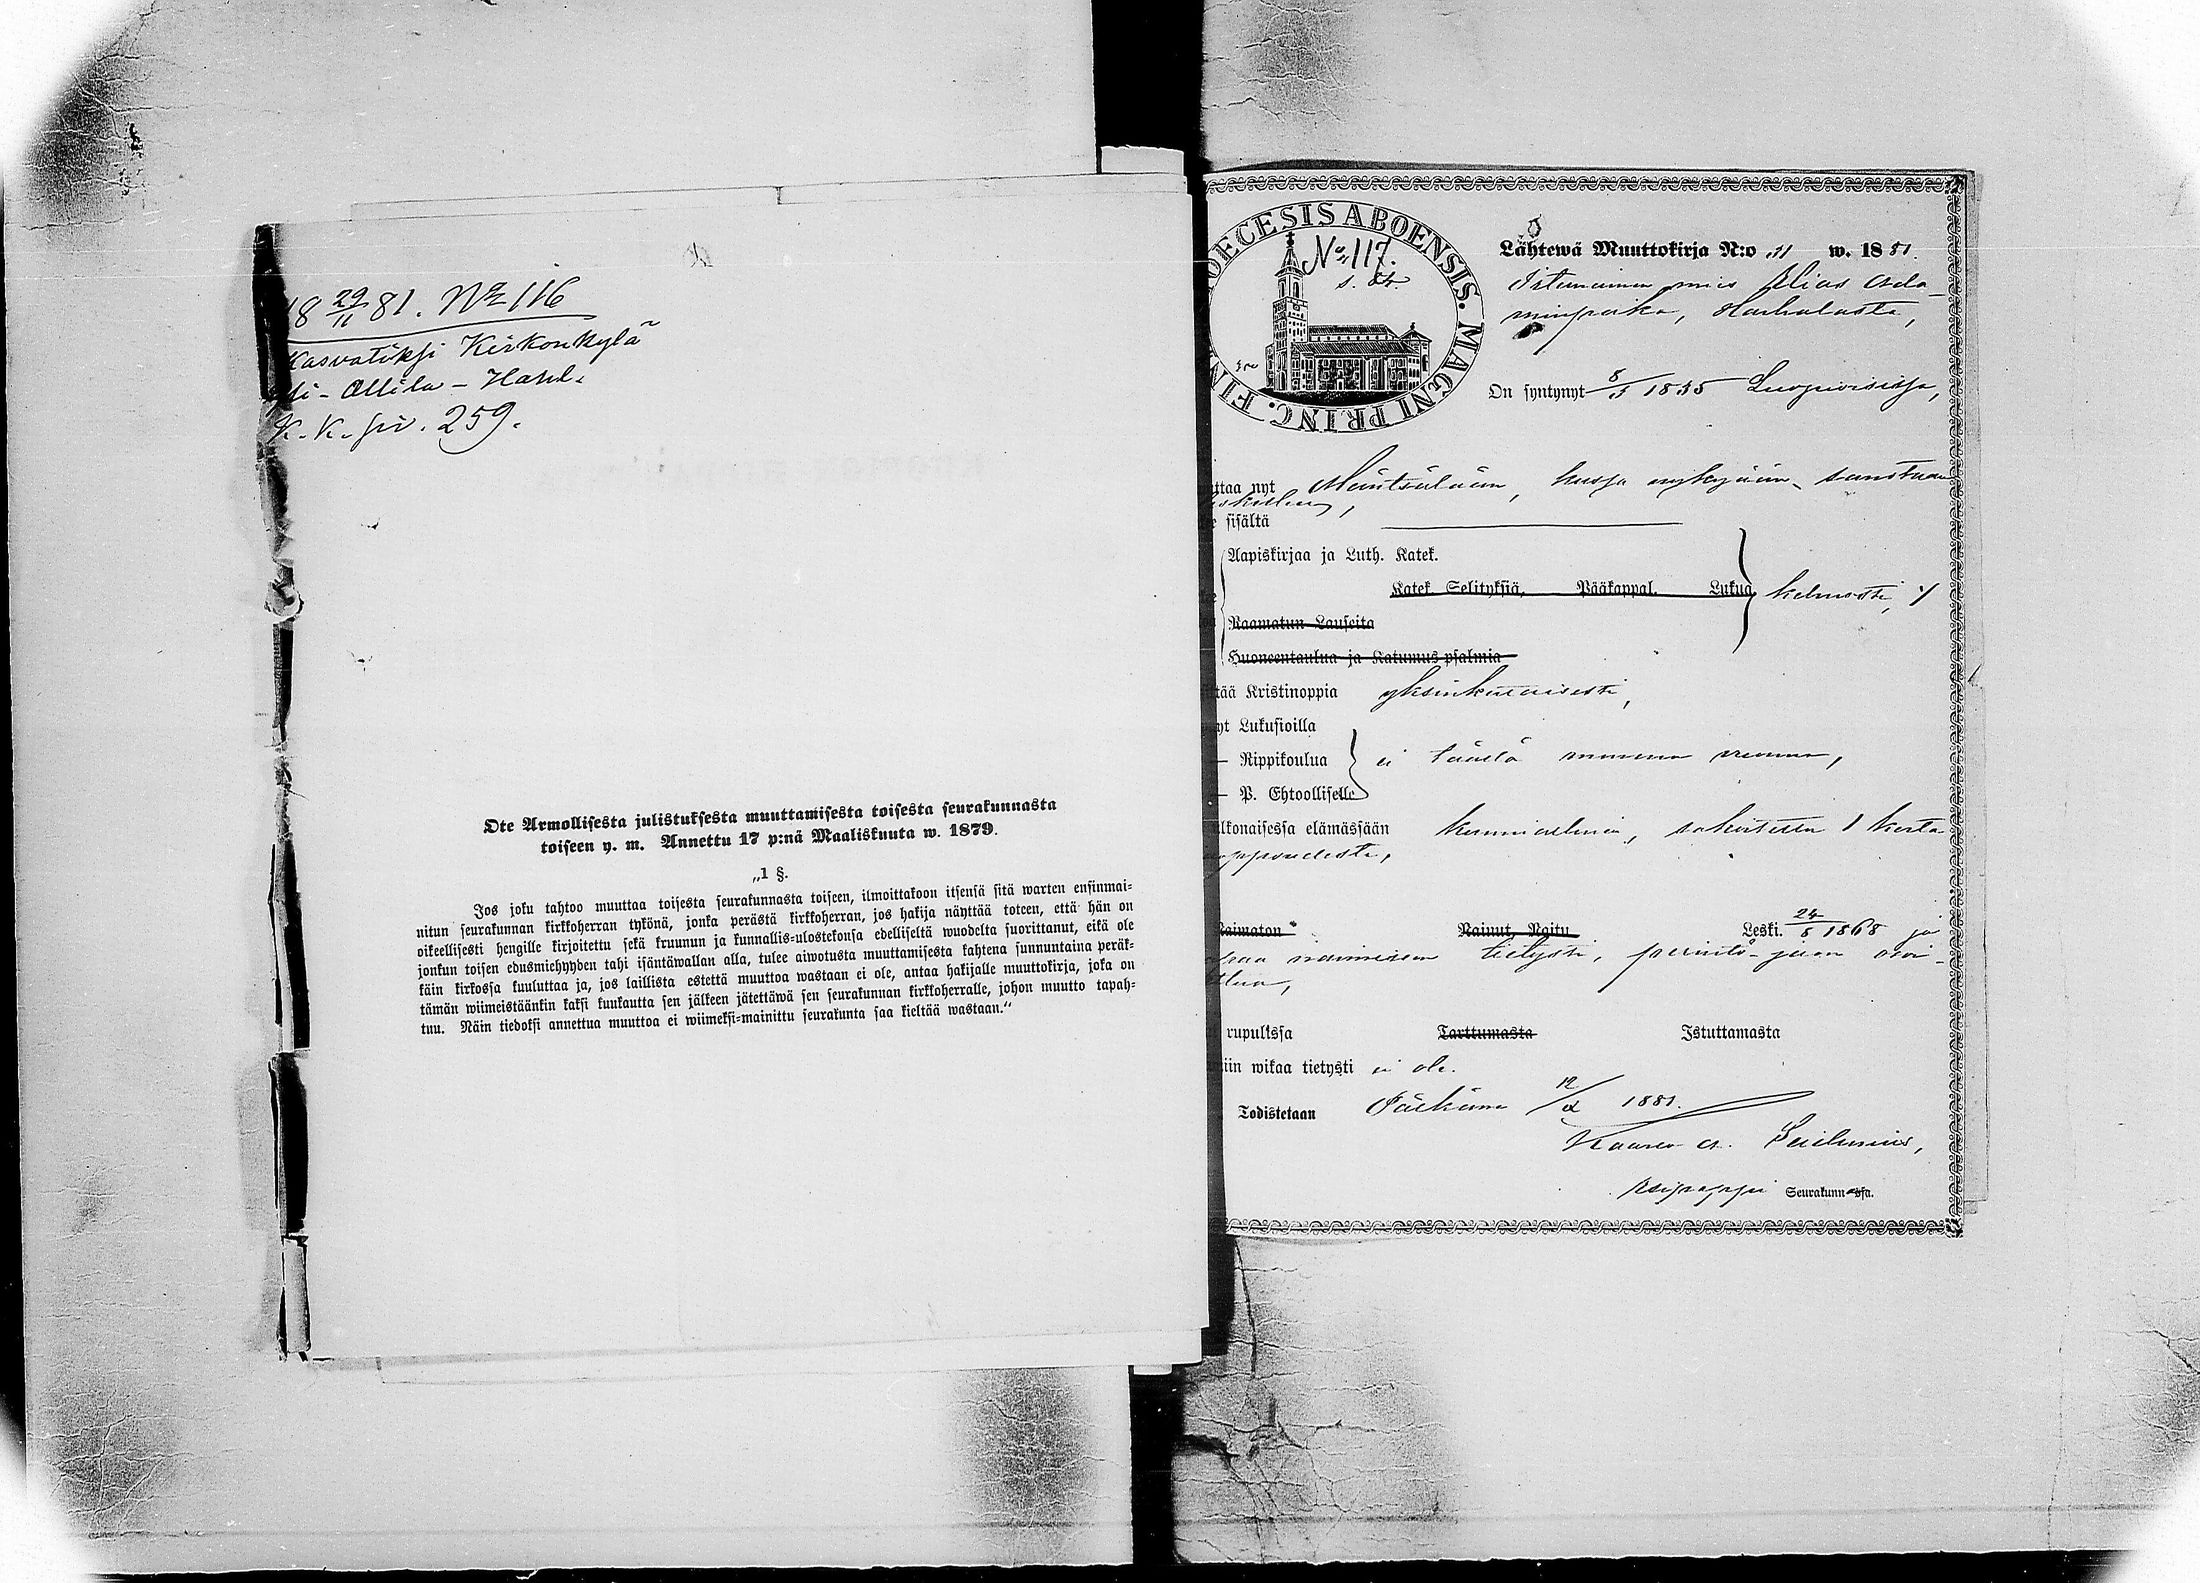 18 29/11 81. No 116
Kasvatiksi Kirkonkylä
Ali-Ollila-Hasul.
K.K. siv. 259.
Ote Armollisesta julistuksesta muuttamisesta toisesta seurakunnasta
toiseen y. m. Annettu 17 p:nä Maaliskuuta w. 1879.
„1 §.
Jos joku tahtoo muuttaa toisesta seurakunnasta toiseen, ilmoittakoon itsensä sitä warten ensinmai=
nitun seurakunnan kirkkoherran tykönä, jonka perästä kirkkoherran, jos hakija näyttää toteen, että hän on
oikeellisesti hengille kirjoitettu sekä kruunun ja kunnallis=ulostekonsa edelliseltä wuodelta suorittanut, eikä ole
jonkun toisen edusmiehyyden tahi isäntäwallan alla, tulee aiwotusta muuttamisesta kahtena sunnuntaina peräk=
käin kirkossa kuuluttaa ja, jos laillista estettä muuttoa wastaan ei ole, antaa hakijalle muuttokirja, joka on
tämän wiimeistäänkin kaksi kuukautta sen jälkeen jätettäwä sen seurakunnan kirkkoherralle, johon muutto tapah=
tuu. Näin tiedoksi annettua muuttoa ei wiimeksi=mainittu seurakunta saa kieltää wastaan.“
OECESIS ABOENSIS. MAGNI PRINC. FIN
No 117.
Lähtewä Muuttokirja N:o 31 w. 1881.
Itsenäinen mies Elias Ada-
minpoika, Hauhalasta,
On syntynyt 8/3 1835 Luopioisissa,
ttaa nyt Mäntsälään, kussa nykyään
sisältä
Aapiskirjaa ja Luth. Katek.
Katek. Selityksiä, Pääkappal. Lukua kelwosti,
Raamatun Lauseita
Huoneentaulua ja Katumus psalmia
tää Kristinoppia yksinkertaisesti,
yt Lukusioilla
— Rippikoulua ei täällä
— P. Ehtoolliselle
lkonaisessa elämässään kunniallinen, sakoitettu 1 kerta
juoppoudesta,
Naimaton Nainut, Naitu Leski. 24/5 1868 ja
naimiseen tietysti,
rupulissa Tarttumasta Istuttamasta
iin wikaa tietysti ei ole.
Todistetaan Pälkäne 12/2 1881.
Kaarlo A.
Seurakunnassa.